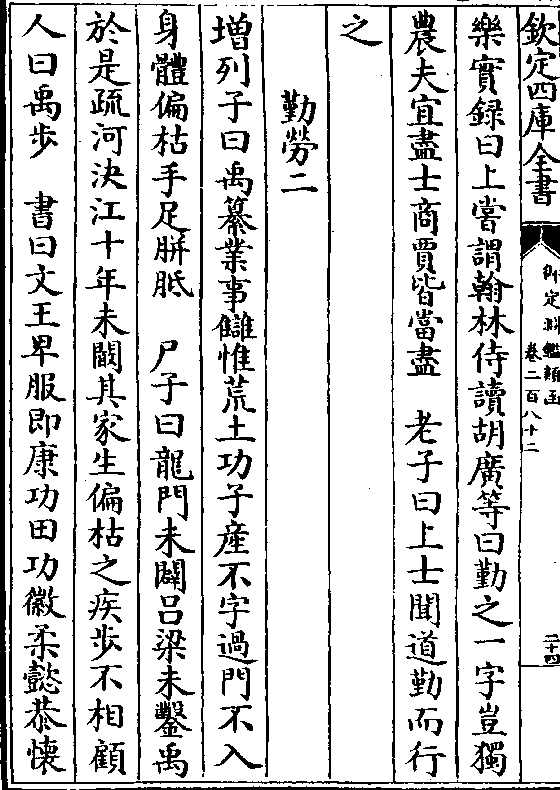 欽定四庫全書
御定淵鑑類函
卷二百八十二
二十四
樂實録曰上嘗謂翰林侍讀胡廣等曰勤之一字豈獨
農夫宜盡士商賈皆當盡　老子曰上士聞道勤而行
之
勤勞二
增列子曰禹纂業事讎惟荒土功子産不字過門不入
身體偏枯手足胼胝　尸子曰龍門未闢吕梁未鑿禹
於是疏河決江十年未闞其家生偏枯之疾步不相顧
人曰禹步　書曰文王卑服即康功田功徽柔懿恭懐